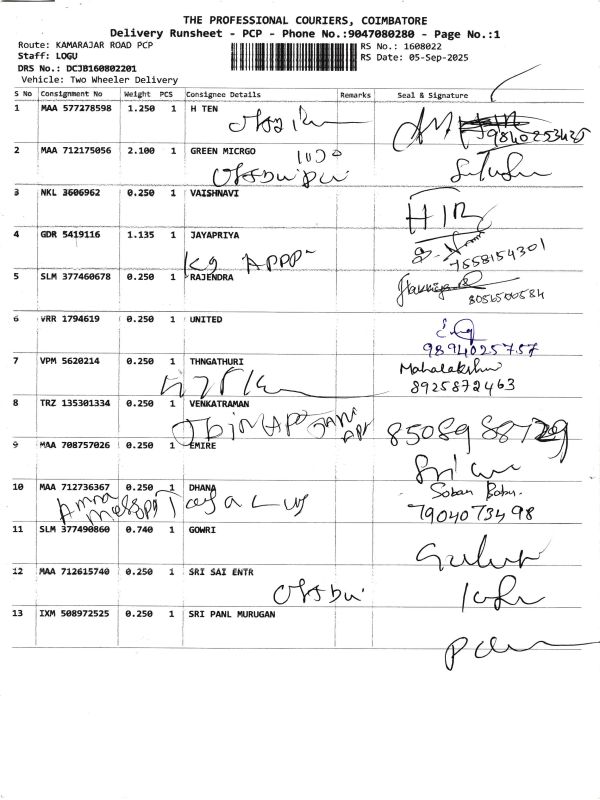 THE PROFESSIONAL COURIERS, COIMBATORE
Delivery Runsheet - PCP - Phone No.:9047080280 - Page No.:1
Route: KAMARAJAR ROAD PCP
RS No.: 1608022
Staff: LOGU
RS Date: 05-Sep-2025
DRS No.: DCJB160802201
Vehicle: Two Wheeler Delivery
S No Consignment No Weight PCS Consignee Details Remarks Seal & Signature
1 MAA 577278598 1.250 1 H TEN
9840253435
2 MAA 712175056 2.100 1 GREEN MICRGO
3 NKL 3606962 0.250 1 VAISHNAVI
4 GDR 5419116 1.135 1 JAYAPRIYA
7558154301
5 SLM 377460678 0.250 1 RAJENDRA
8056500584
6 VRR 1794619 0.250 1 UNITED
9894025757
7 VPM 5620214 0.250 1 THNGATHURI
Mahalakshmi
8925872463
8 TRZ 135301334 0.250 1 VENKATRAMAN
9 MAA 708757026 0.250 1 EMIRE
10 MAA 712736367 0.250 1 DHANA
Soban Babu.
7904073498
11 SLM 377490860 0.740 1 GOWRI
12 MAA 712615740 0.250 1 SRI SAI ENTR
13 IXM 508972525 0.250 1 SRI PANL MURUGAN